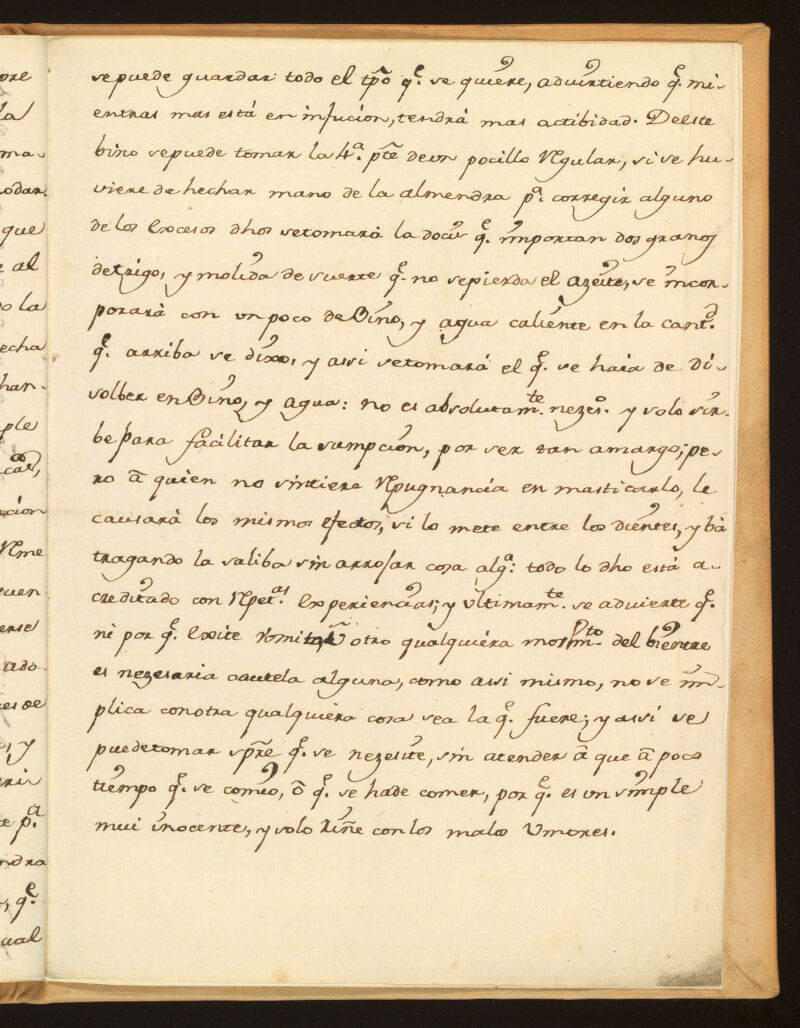 se puede guardar todo el tp̃o q.e se quiere, advirtiendo q.e mi-
entras mas está en infucion, tendrá mas actibidad. Deeste
bino sepuede tomar la 4.a p.te deun pocillo Regular, si se hu-
viere de hechar mano de la almendra p.a corregir alguno
de los Excesos dhos setomará la docis q.e importan dos granos
de trigo, y molida de suerte q.e no sepierda el azeite, se incor-
porará con un poco de Vino, y agua caliente en la cant.d
q.e arriba se dixo, y assi setomará el q.e se haia de di-
solber en Vino, y agua: no es absolutam.te nezes.o y solo sir-
be para facilitar la sumpcion, por ser tan amargo; pe-
ro â quien no sintiere Repugnancia en masticarlo, le
causará los mismos efectos, si lo mete entre los dientes, y bá
tragando la saliba sin arrojar cosa alg.a: todo lo dho está a-
creditado con Repet.as Experiencias; y ultimam.te se advierte q.e
ni por q.e Exite vomito, û otro qualquiera mobim.to del bientre
es nezesaria cautela alguna, como assi mismo, no se im-
plica conotra qualquiera cosa sea la q.e fuere; y assi se
puedetomar spr̃e q.e se nezesite, sin atender â que â poco
tiempo q.e se comio, ô q.e se hade comer, por q.e es un simple
mui inocente, y solo riñe con los malos Umores.
pre
la
ma-
odar
que
e al
do la
echa
han-
ple
ucion
Rme
quen
erse
ado-
es de
s, y
rir
e p.a
ndra
s, q.e
ual